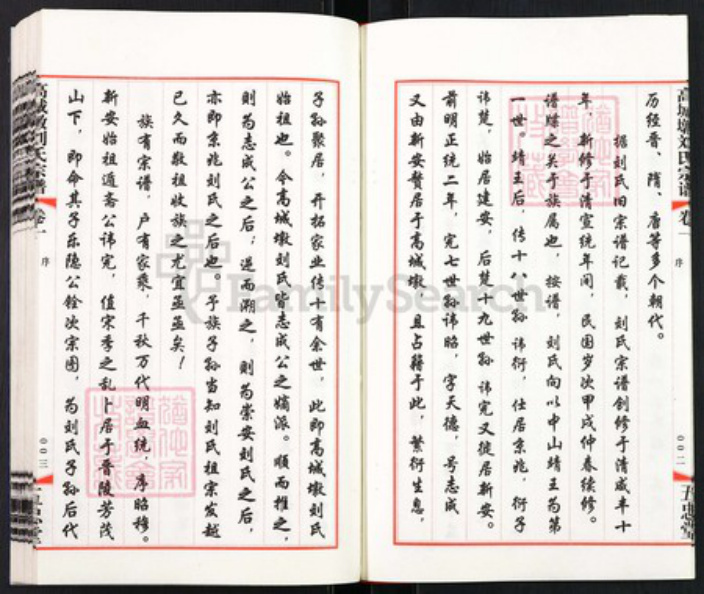 历经晋、隋、唐等多个朝代。
据刘氏旧宗谱记载，刘氏宗谱创修于清咸丰十
年，新修于清宣统年间，民国岁次甲戌仲春续修。
谱牒之关于族属也，按谱，刘氏向以中山靖王为第
一世。靖王后，传十八世孙讳衍，仕居京兆，衍子
讳楚，始居建安，后楚十九世孙讳宽又徙居新安。
前明正统二年，宽七世孙讳昭，字天德，号志成
又由新安赘居于高城墩，且占籍于此，繁衍生息，
子孙聚居，开拓家业传十有余世，此即高城墩刘氏
始祖也。今高城墩刘氏皆志成公之嫡派。顺而推之，
则为志成公之后；逆而溯之，则为崇安刘氏之后，
亦即京兆刘氏之后也。予族子孙当知刘氏祖宗发越
已久而敬祖收族之尤宜亟亟矣！
族有宗谱，户有家乘，千秋万代明血统，序昭穆。
新安始祖遁斋公讳宽，值宋季之乱卜居于晋陵芳茂
山下，即命其子乐隐公铨次宗图，为刘氏子孙后代
高城墩刘氏宗谱 卷一 序
〇〇二
五忠堂
高城墩刘氏宗谱 卷一 序
〇〇三
五忠堂
FamilySearch